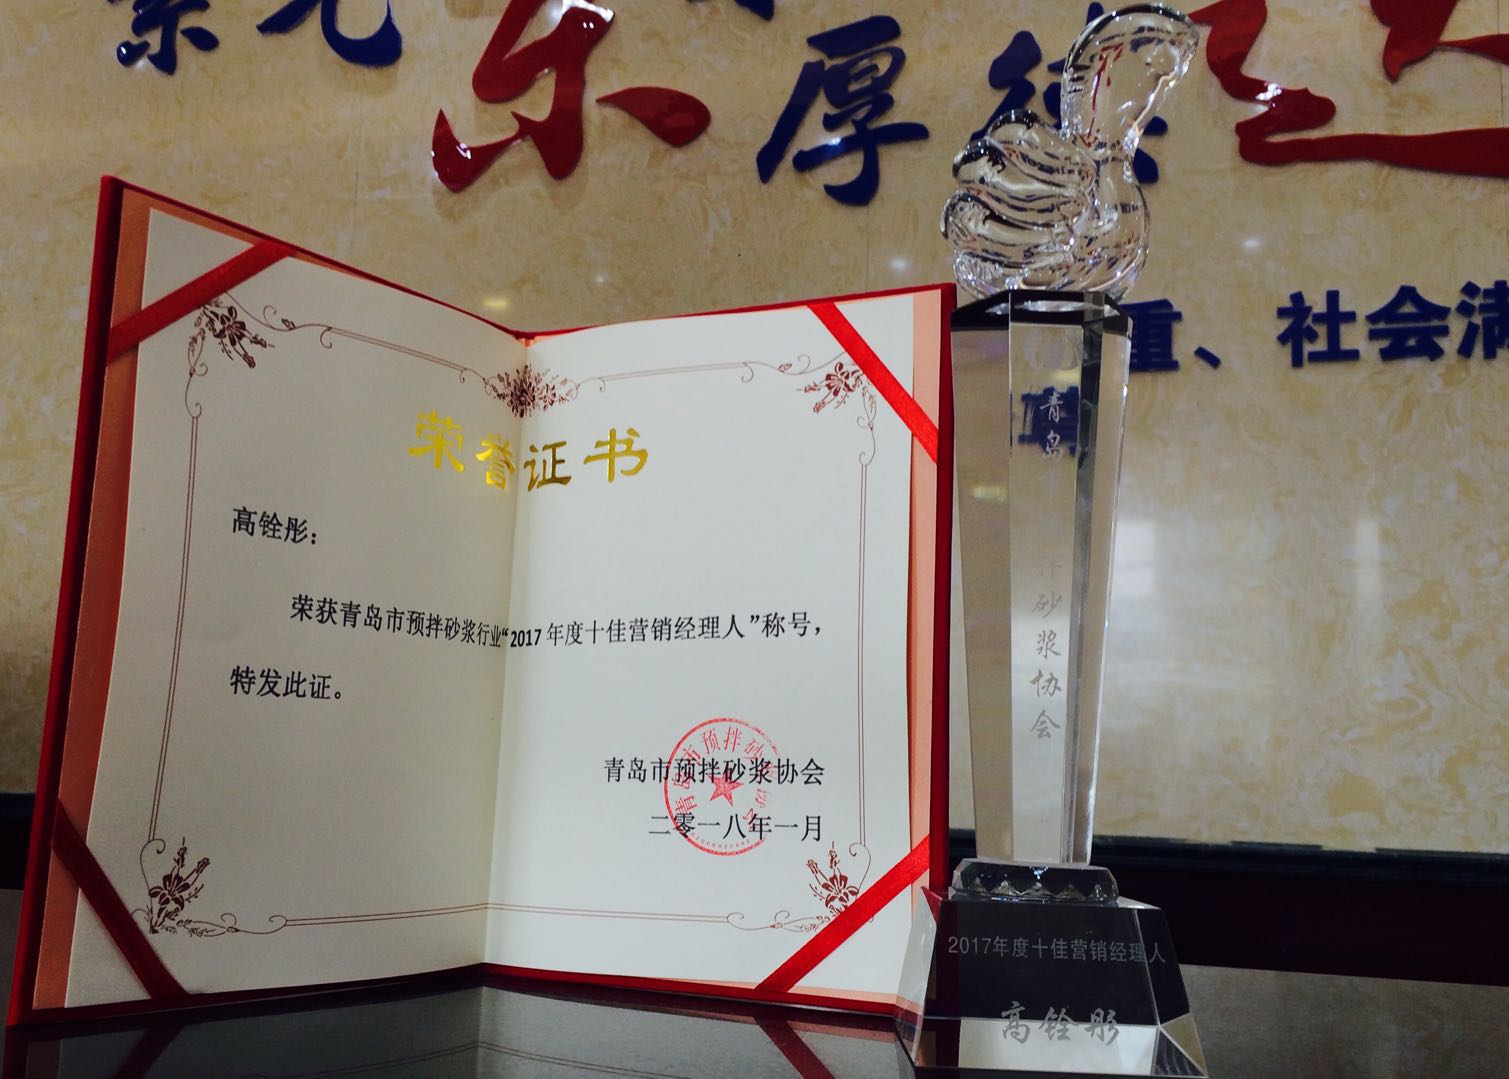 乐
厚德
重、社会满
荣誉证书
高铨彤：
荣获青岛市预拌砂浆行业“2017年度十佳营销经理人”称号，
特发此证。
青岛市预拌砂浆协会
二零一八年一月
青岛
拌砂浆协会
2017年度十佳营销经理人
高铨彤